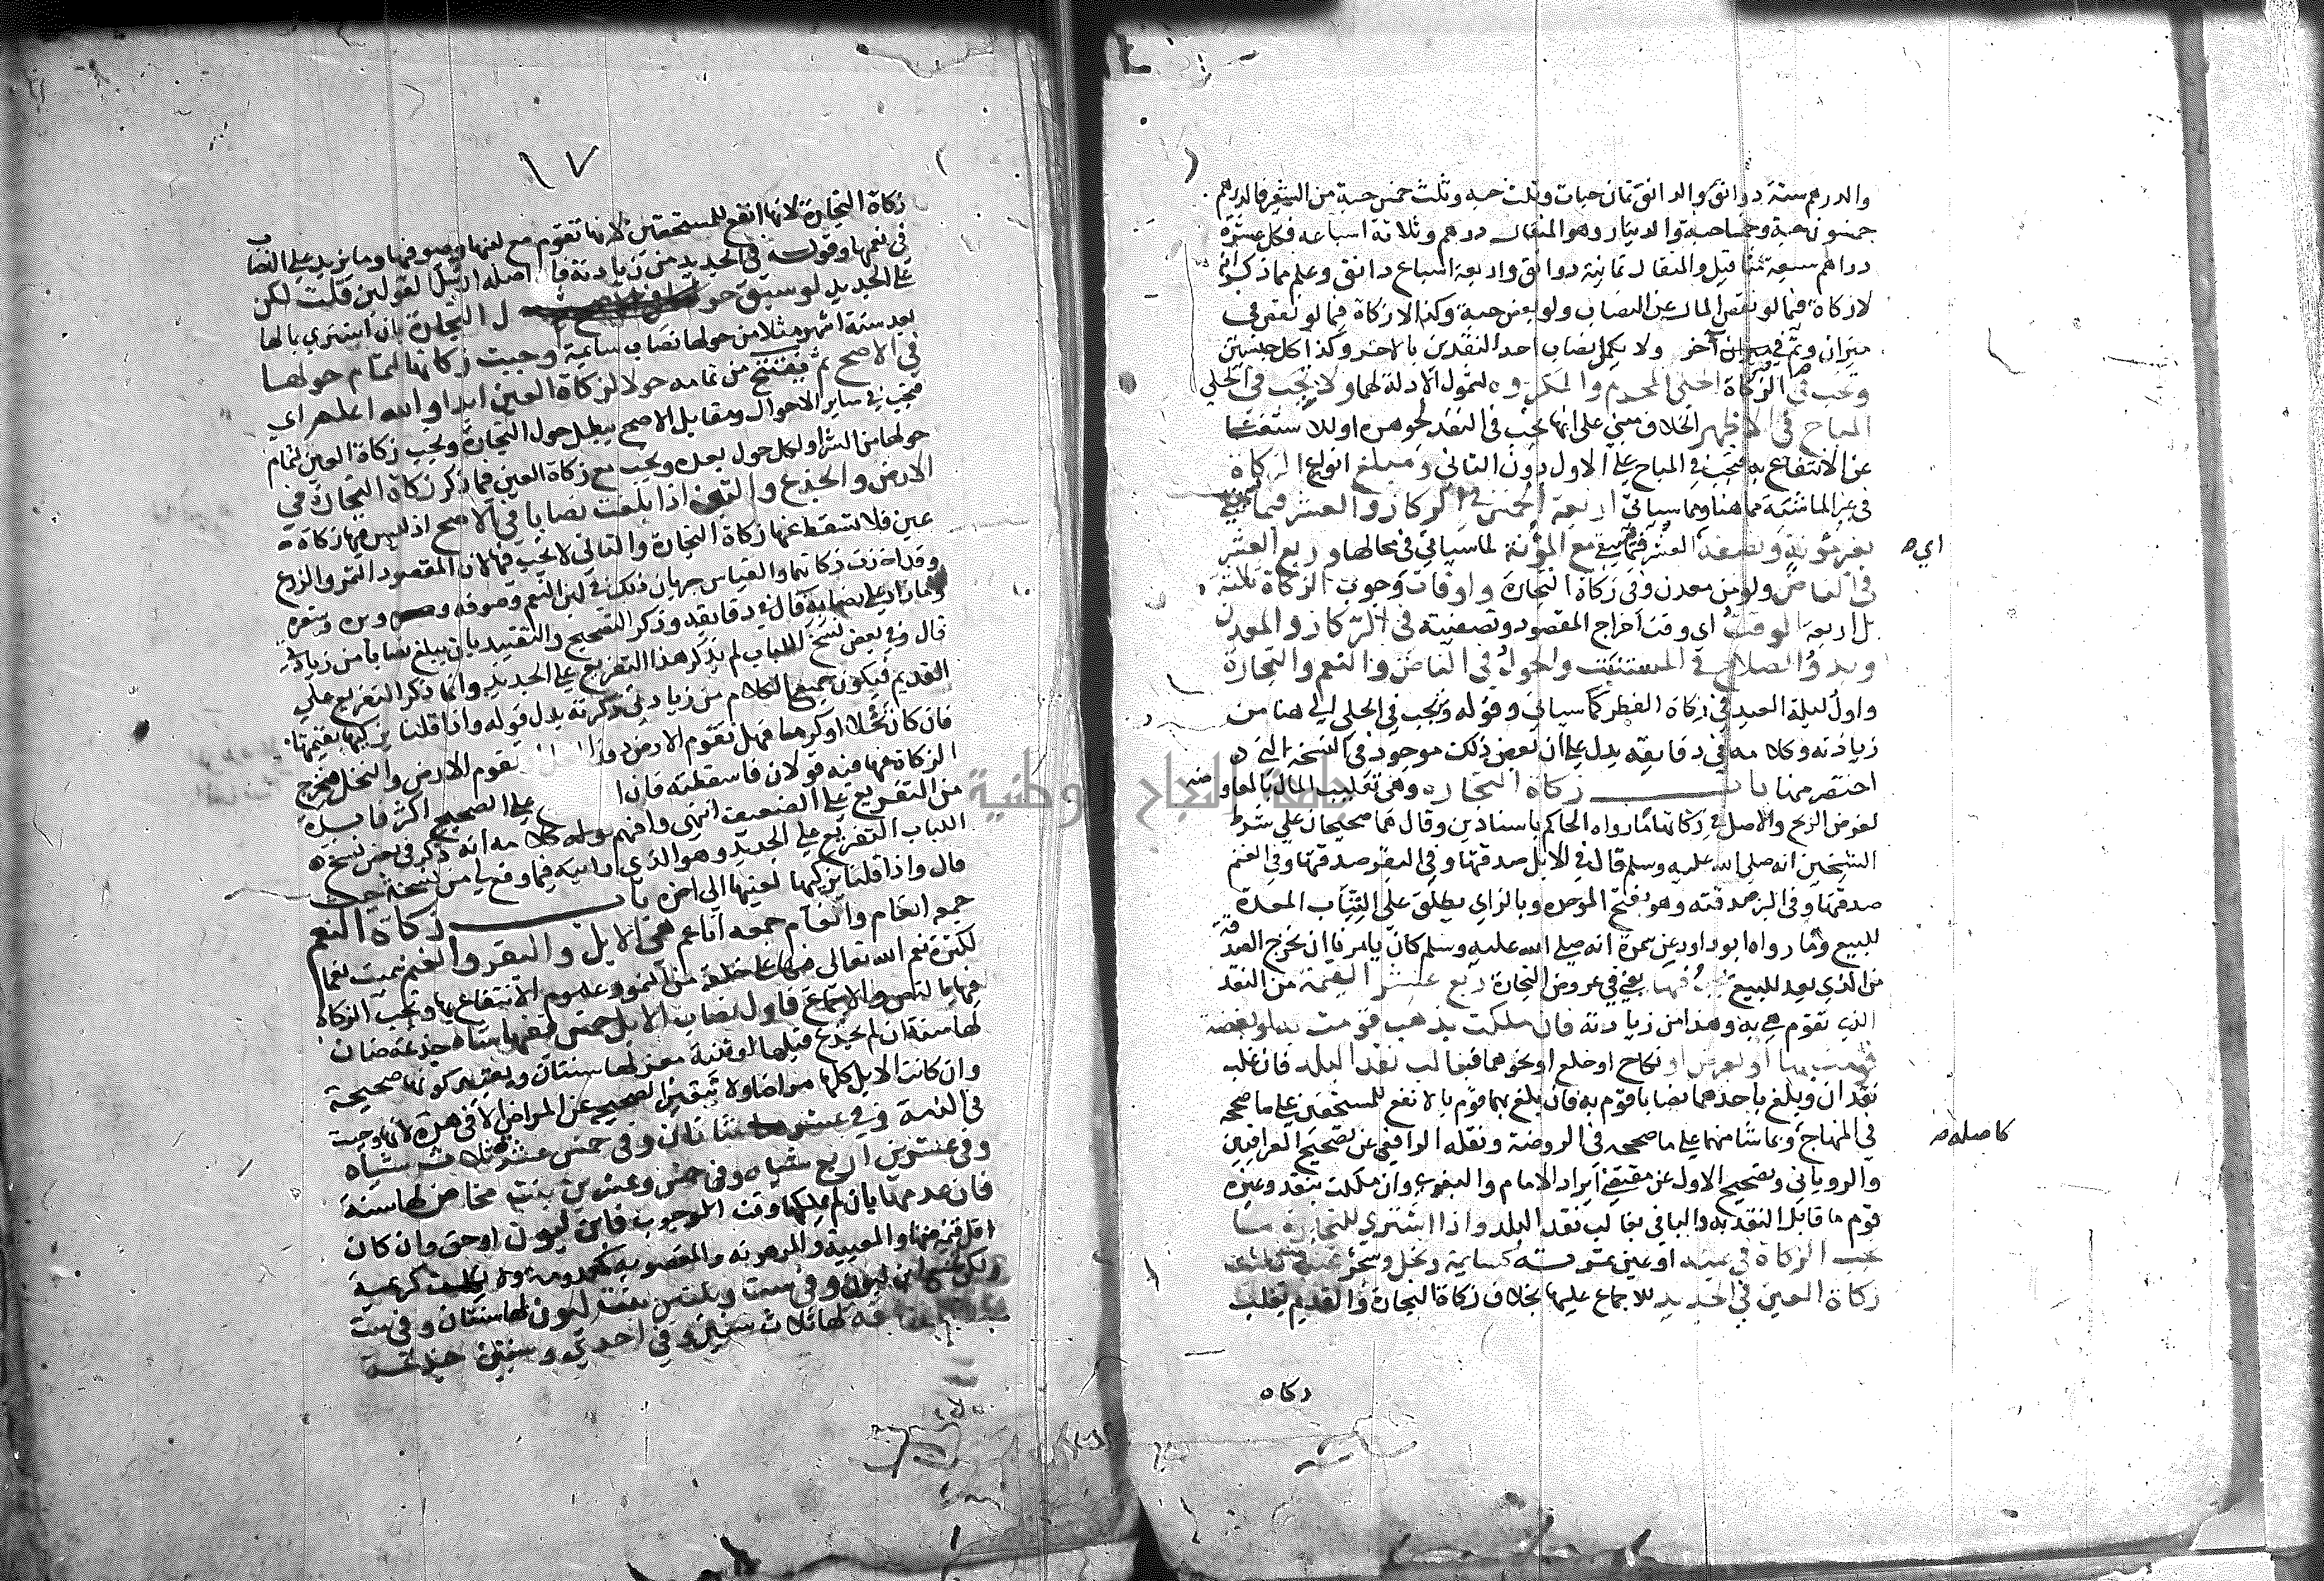 والدرهم ستة دوانق والدانق ثمان حبات وثلث حبه وثلث خمس حبة من الشعير فالدرهم
خمسون حبة وخمسا حبة والدينار وهو المثقال درهم وثلاثة اسباعه فكل عشرة
دراهم سبعة مثاقيل والمثقال ثمانية دوانق واربعة اسباع دانق وعلم مما ذكر انه
لا زكاة فيما لو نقص المال عن النصاب ولو بعض حبة وكذا لا زكاة فيما لو نقص في
ميزان وتم في ميزان آخر ولا يكمل نصاب احد النقدين بالاخر وكذا كل جنسين
وتجب في الزكاة الحلي المحرم والمكروه لشمول الادلة لهما ولا تجب في الحلي
المباح في الاظهر الخلاف مبني على انها تجب في النقد لجوهره او للاستغنا
عن الانتفاع به فتجب في المباح على الاول دون الثاني ومبلغ انواع الزكاة
في غير الماشية مما هنا ومما سياتي اربعة الخمس في الركاز والعشر فيما سقي
بغير مؤنة ونصف العشر فيما سقي مع المؤنة لما سياتي في محالها وربع العشر
اي
في الناض ولو من معدن وفي زكاة التجارة واوقات وجوب الزكاة ثلثة
بل اربعة الوقت اي وقت اخراج المقصود وتصفيته في الركاز والمعدن
وبدو الصلاح في المستنبت والحول في الناض والنعم والتجارة
واول ليلة العيد في زكاة الفطر كما سياتي وقوله وتجب في الحلي الي هنا من
زيادته وكلامه في دقايقه يدل على ان بعض ذلك موجود في النسخة التي
اختصر منها باب زكاة التجاره وهي تقليب المال بالمعاوضه
لغرض الربح والاصل في زكاتها ما رواه الحاكم باسنادين وقال هما صحيحان على شرط
الشيخين انه صلى الله عليه وسلم قال في الابل صدقتها وفي البقر صدقتها وفي الغنم
صدقتها وفي البز صدقته وهو بفتح الموحده وبالزاي يطلق على الثياب المعدة
للبيع وما رواه ابو داود عن سمرة انه صلى الله عليه وسلم كان يامرنا ان نخرج الصدقة
من الذي يعد للبيع فيها يعني في عروض التجارة ربع عشر القيمة من النقد
الذي تقوم هي به وهذا من زيادته فان ملكت بذهب قومت به او بفضة
قومت بها او بعرض او نكاح او خلع او نحوهما فبغالب نقد البلد فان غلب
نقدان وبلغ باحدهما نصابا قوم به فان بلغ بهما قوم بالانفع للمستحقين على ما صححه
في المنهاج وبما شا منهما على ما صححه في الروضة ونقله الرافعي عن تصحيح العراقيين
كاصله
والروياني وتصحيح الاول عن مقتضى ايراد الامام والبغوي وان ملكت بنقد وغيره
قوم ما قابل النقد به والباقي بغالب نقد البلد واذا اشتري للتجارة ما
تجب الزكاة في عينه او عين ثمرته كسايمة ونخل وشجر عنب
زكاة العين في الجديد للاجماع عليها بخلاف زكاة التجارة والقديم يغلب
زكاة
١٧
زكاة التجارة لانها انفع للمستحقين لانها تقوم مع لبنها وصوفها وما يزيد على النصاب
في نعمها وقوله في الجديد من زيادته اصله ارسل القولين قلت لكن
على الجديد لو سبق حول التجارة بان اشترى بمالها
بعد ستة اشهر مثلا من حولها نصاب سايمة وجبت زكاتها لتمام حولها
في الاصح ثم يفتتح من تمامه حولا لزكاة العين ابدا والله اعلم اي
فتجب في ساير الاحوال ومقابل الاصح يبطل حول التجارة وتجب زكاة العين لتمام
حولها من الشرا ولكل حول بعده وتجب مع زكاة العين فيما ذكر زكاة التجارة في
الارض والجذع والتبن اذا بلغت نصابا في الاصح اذ ليس فيها زكاة
عين فلا تسقط عنها زكاة التجارة والثاني لا تجب فيها لان المقصود الثمر والزرع
وقد اخذت زكاتهما والقياس جريان ذلك في لبن النعم وصوفه ووبره وشعره
وما زاد على نصابه قال في دقايقه وذكر التصحيح والتقييد بان يبلغ نصابا من زيادتي
قال وفي بعض نسخ اللباب لم يذكر هذا التفريع على الجديد وانما ذكر التفريع على
القديم فيكون جميع الكلام من زيادتي ذكرته بدل قوله واذا قلنا يزكيها بقيمتها
فان كان نخلا او كرما فهل تقوم الارض تقوم الارض والنخل فتخرج
الزكاة عنها فيه قولان فاسقطته فان على الصحيح اكثر فايدة
من التفريع على الضعيف انتهى وافهم كلامه انه ذكر في بعض نسخ
اللباب التفريع على الجديد وهو الذي رايته فيما وقع لي من نسخة حيث
قال واذا قلنا يزكيها لعينها الى اخره باب زكاة النعم
جمعه انعام وانعام جمعه اناعم هي الابل والبقر والغنم سميت نعما
لكثرة نعم الله تعالى فيها على خلقه من النمو وعموم الانتفاع بها وتجب الزكاة
فيها بالنص والاجماع فاول نصاب الابل خمس ففيها شاه جذعة ضان
لها سنة ان لم تجذع قبلها او ثنية معز لها سنتان ويعتبر كونها صحيحة
وان كانت الابل كلها مراضا ولا يتعين الصحيح عن المراض الا في هذه لانها وجبت
في الذمة وفي عشر شاتان وفي خمس عشرة ثلاث شياه
وفي عشرين اربع شياه وفي خمس وعشرين بنت مخاض لها سنة
فان عدمها بان لم يملكها وقت الوجوب فابن لبون او حق وان كان
اقل قيمة منها والمعيبة والمرهونه والمغصوبه كمعدومة ولا يكلف كريمة
لكن ابن لبون وفي ست وثلثين بنت لبون لها سنتان وفي ست
حقه لها ثلاث سنين وفي احدى وستين جذعة